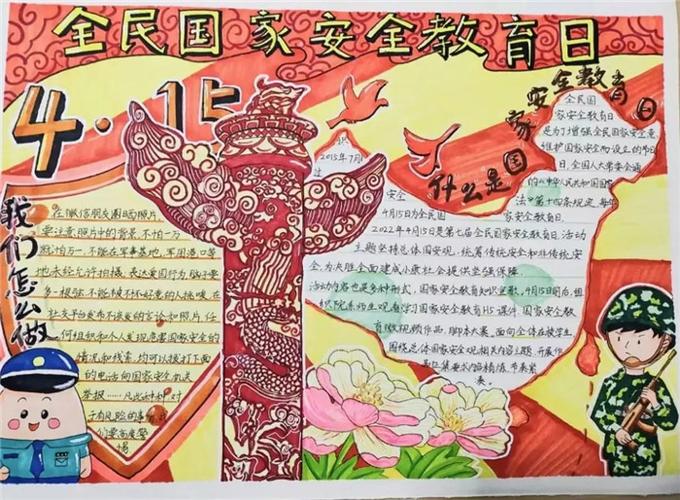 全民国家安全教育日
4·15
我们怎么做
在微信朋友圈晒照片,
要注意照片中的背景,不怕一万
就怕万一,不能在军事基地、军用港口等
地未经允许拍摄,表达爱国行为脑子要
多一根弦,不能被不怀好意的人挑唆,在
社交平台发布不该发的言论和照片,任
何组织和个人发现危害国家安全
情况和线索,均可以拨打下面
的电话向国家安全机关
举报……凡此种种,对
于有风险的事
们要高度警
惕
什么是国家安全教育日
全民国
家安全教育日
是为了增强全民国家安全意
维护国家安全而设立的节日
日,全国人大常委会通
的《中华人民共和国国家
法》第十四条规定,每年
识
2015年7月1
过
安全
4月15日为全民国
家安全教育日。
2022年4月15日是第七届全民国家安全教育日,活动
主题坚持总体国安观,统筹传统安全和非传统安
全,为决胜全面建成小康社会提供坚强保障
活动内容也是多种形式,国家安全教育知识竞赛,4月15日前后,组
织院系师生观看学习国家安全教育H5课件、国家安全教
育微视频作品,脚本大赛,面向全体在校学生
围绕总体国家安全观相关内容主题,开展作
品征集要求内容精炼,节奏紧
凑。